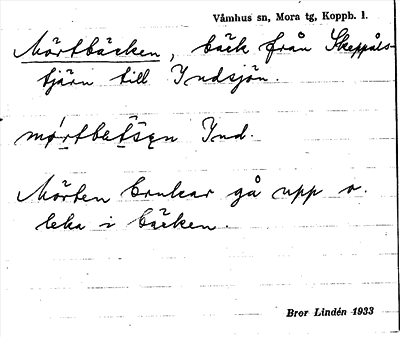 Våmhus sn, Mora tg, Koppb. l.
Mörtbäcken, bäck från Skeppåls-
tjärn till Indsjön.
Ind.
Mörten brukar gå upp o.
leka i bäcken.
Bror Lindén 1933